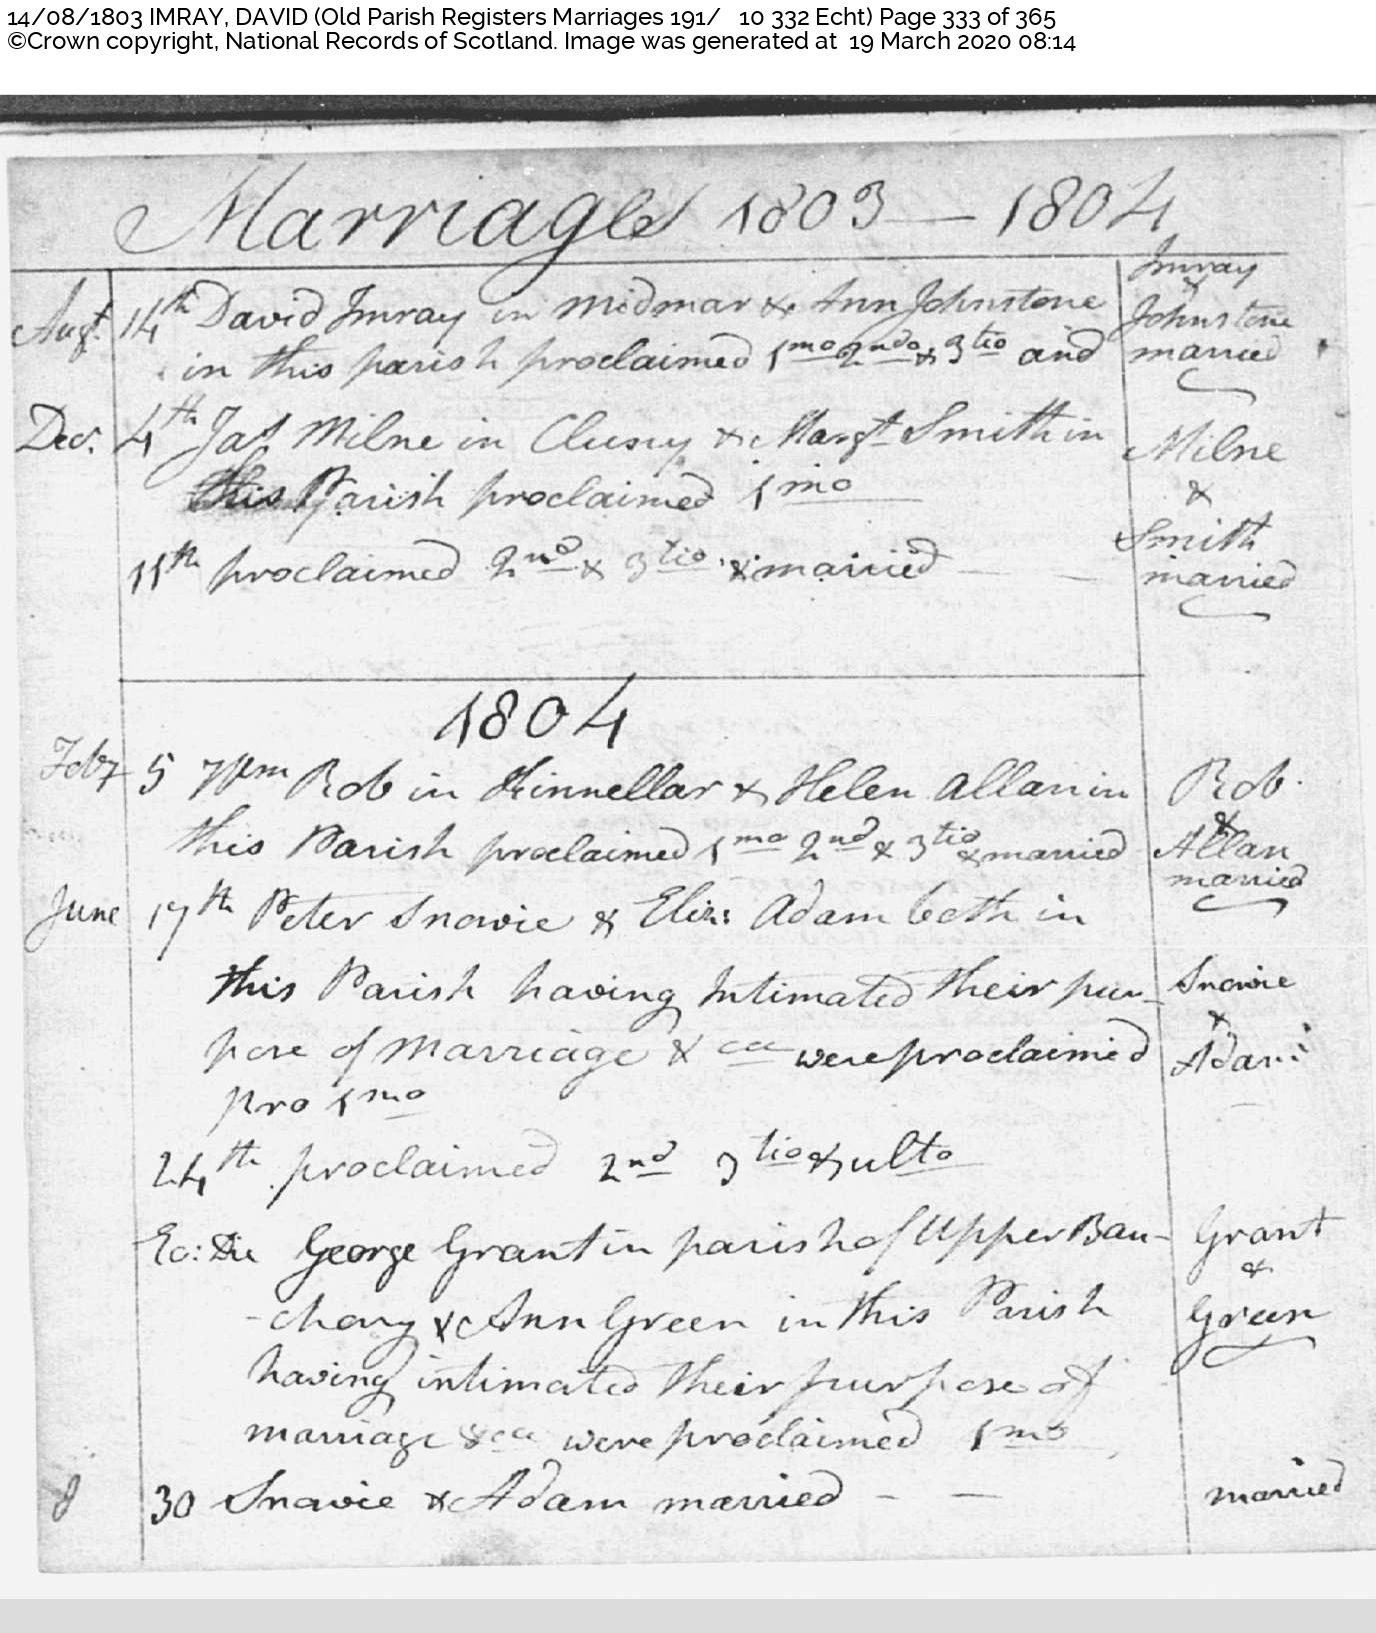 14/08/1803 IMRAY, DAVID (Old Parish Registers Marriages 191/ 10 332 Echt) Page 333 of 365
©Crown copyright, National Records of Scotland. Image was generated at 19 March 2020 08:14
Marriages 1803 — 1804
Augt 14th David Imray in Midmar & Ann Johnstone
in this parish proclaimed 1mo 2ndo & 3tio and
Imray
&
Johnstone
married
Decr. 4th Jas Milne in Cluny & Margt Smith in
this Parish proclaimed 1mo
11th proclaimed 2nd & 3tio & married — —
Milne
&
Smith
married
1804
Feby 5 Wm Rob in Kinnellar & Helen Allan in
this Parish proclaimed 1mo 2nd & 3tio & married
Rob.
&
Allan
married
June 17th Peter Snowie & Eliz: Adam both in
this Parish having Intimated their pur-
pose of Marriage & cca were proclaimed
pro 1mo
24th proclaimed 2nd 3tio & ulto
Snowie
&
Adam
Eo: Die George Grant in parish of Upper Ban-
-chory & Ann Green in this Parish
having intimated their purpose of
marriage &cca were proclaimed 1mo
Grant
&
Green
30 Snowie & Adam married - —
married